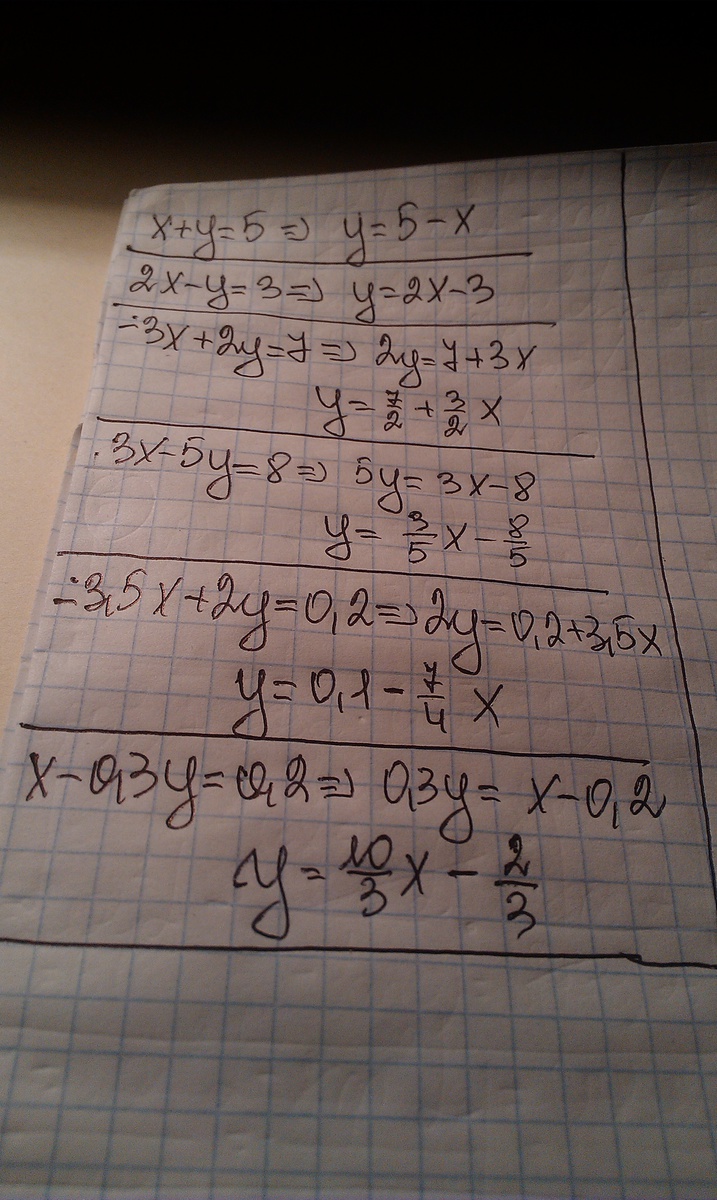 x+y=5 => y=5-x
2x-y=3 => y=2x-3
-3x+2y=7 => 2y=7+3x
y=7/2+3/2 x
3x-5y=8 => 5y=3x-8
y=3/5 x-8/5
-3,5x+2y=0,2 => 2y=0,2+3,5x
y=0,1-7/4 x
x-0,3y=0,2 => 0,3y=x-0,2
y=10/3 x-2/3